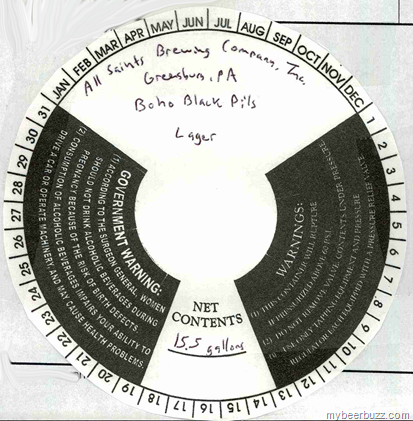 JAN FEB MAR APR MAY JUN JUL AUG SEP OCT NOV DEC
1 2 3 4 5 6 7 8 9 10 11 12 13 14 15 16 17 18 19 20 21 22 23 24 25 26 27 28 29 30 31
All Saints Brewing Company, Inc.
Greensburg, PA
Boho Black Pils
Lager
GOVERNMENT WARNING:
(1) ACCORDING TO THE SURGEON GENERAL, WOMEN
SHOULD NOT DRINK ALCOHOLIC BEVERAGES DURING
PREGNANCY BECAUSE OF THE RISK OF BIRTH DEFECTS.
(2) CONSUMPTION OF ALCOHOLIC BEVERAGES IMPAIRS YOUR ABILITY TO
DRIVE A CAR OR OPERATE MACHINERY, AND MAY CAUSE HEALTH PROBLEMS.
WARNINGS:
(1) THIS CONTAINER WILL RUPTURE
IF PRESSURIZED ABOVE 60 PSI.
(2) DO NOT REMOVE VALVE, CONTENTS UNDER PRESSURE.
(3) USE ONLY TAPPING EQUIPMENT AND PRESSURE
REGULATOR EQUIPPED WITH A PRESSURE RELIEF VALVE.
NET
CONTENTS
15.5 gallons
mybeerbuzz.com